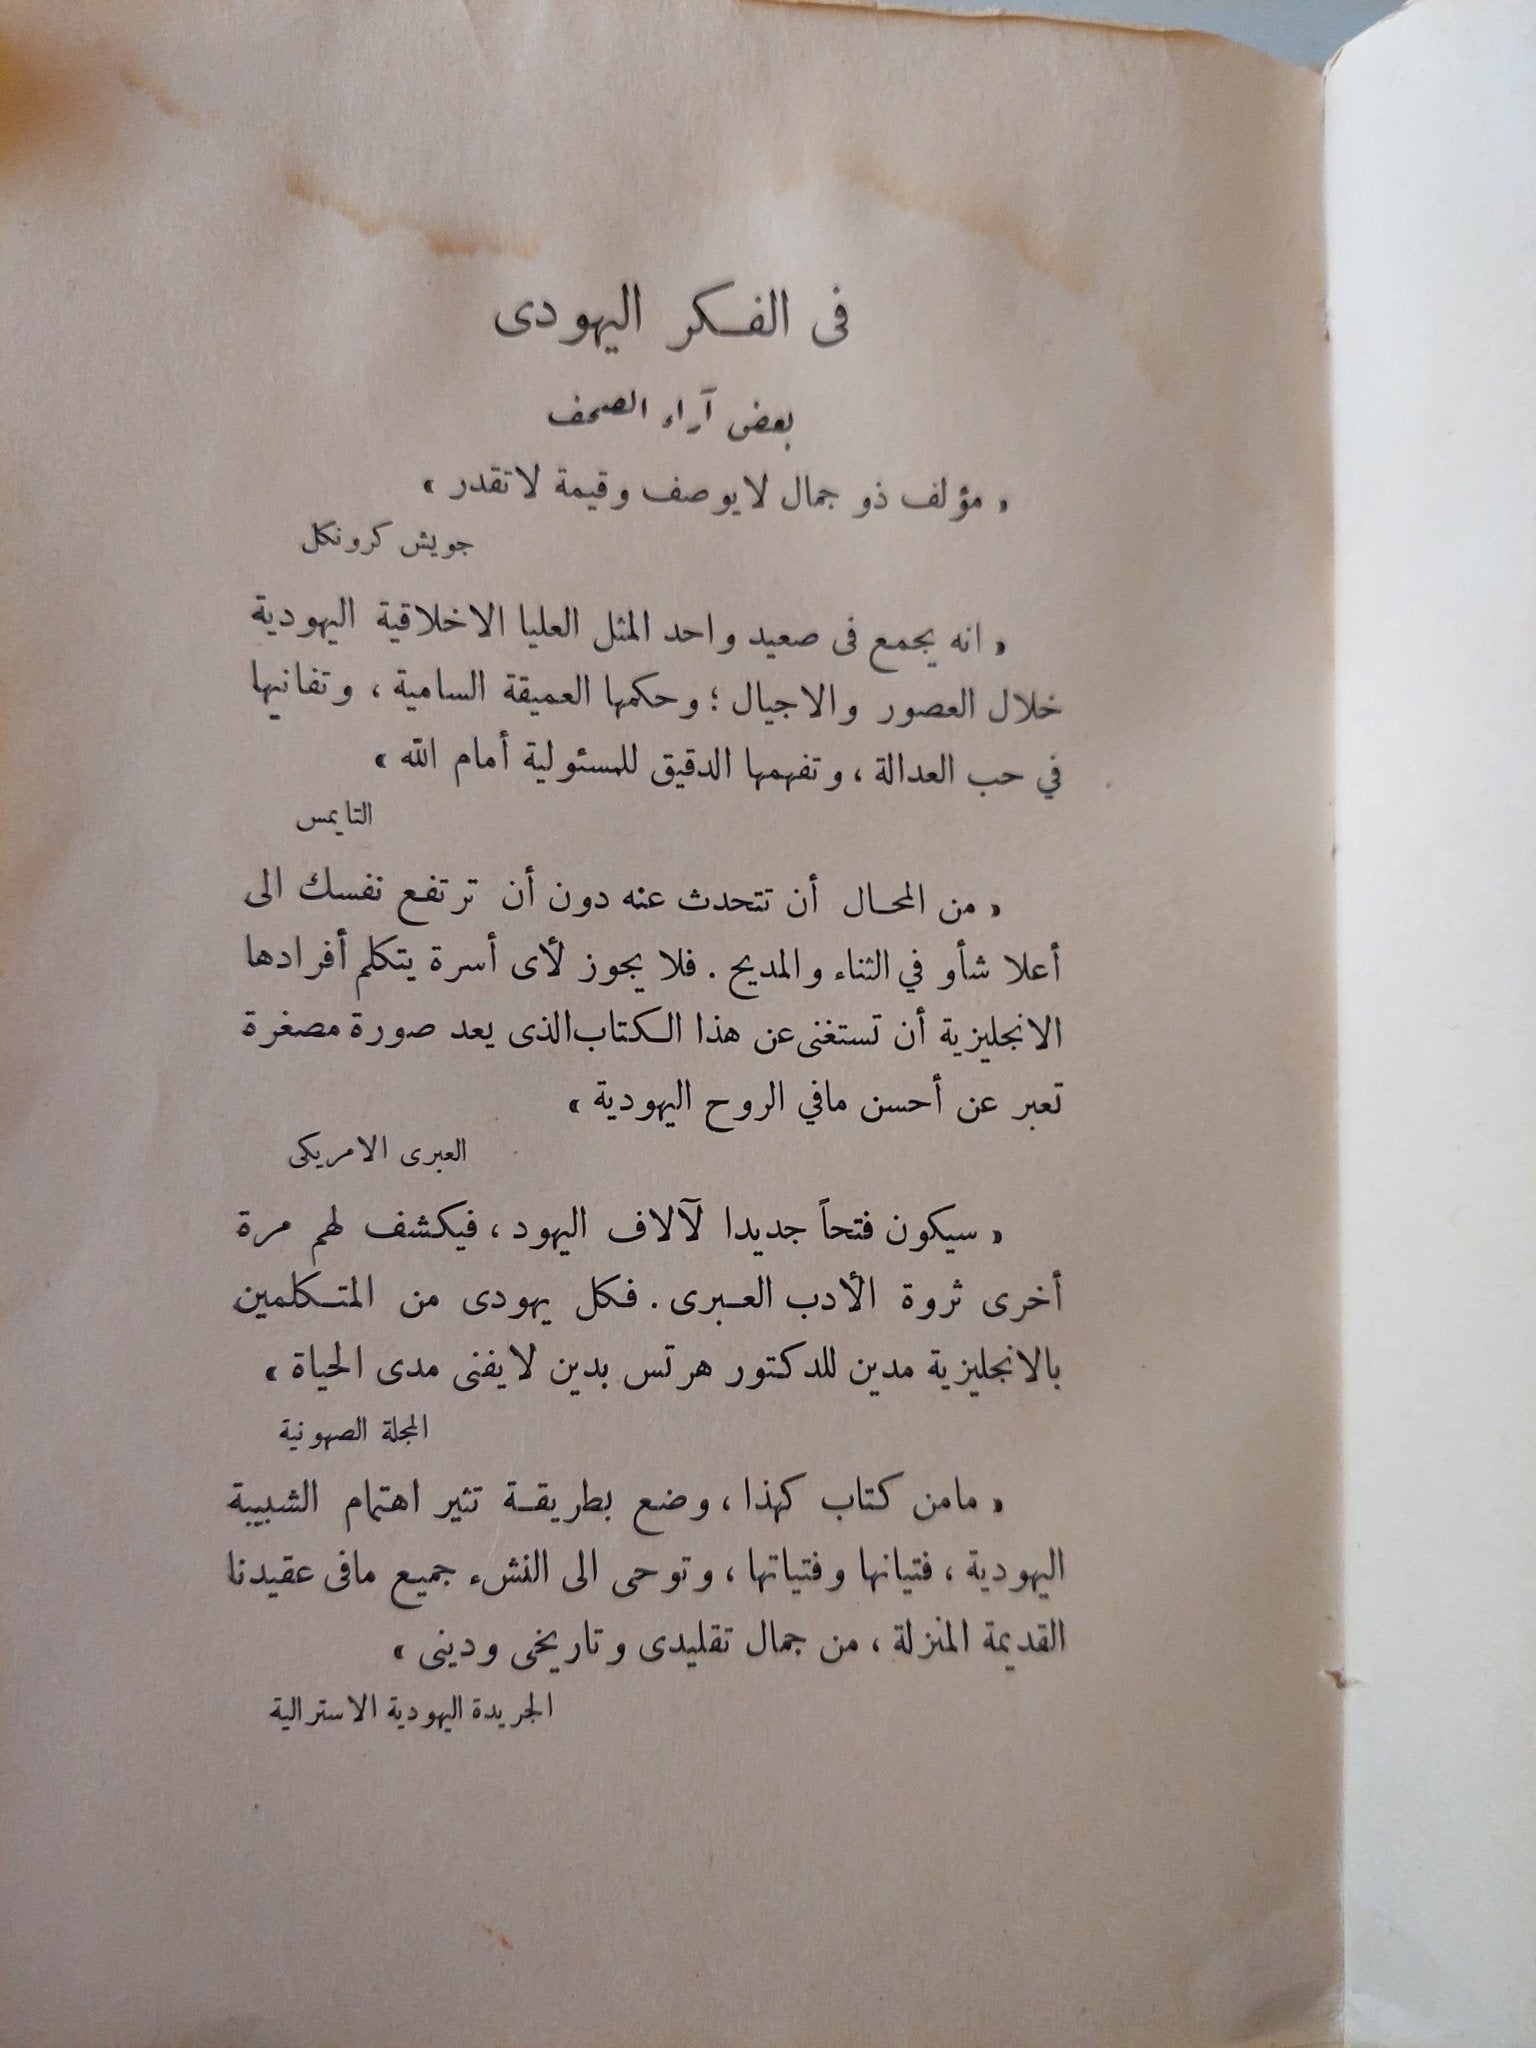 فى الفكر اليهودى
بعض آراء الصحف
« مؤلف ذو جمال لايوصف وقيمة لاتقدر »
جويش كرونكل
« انه يجمع فى صعيد واحد المثل العليا الاخلاقية اليهودية
خلال العصور والاجيال ؛ وحكمها العميقة السامية ، وتفانيها
في حب العدالة ، وتفهمها الدقيق للمسئولية أمام الله »
التايمس
« من المحال أن تتحدث عنه دون أن ترتفع نفسك الى
أعلا شأو في الثناء والمديح . فلا يجوز لأى أسرة يتكلم أفرادها
الانجليزية أن تستغنى عن هذا الكتاب الذى يعد صورة مصغرة
تعبر عن أحسن مافي الروح اليهودية »
العبرى الامريكى
« سيكون فتحاً جديدا لآلاف اليهود ، فيكشف لهم مرة
أخرى ثروة الأدب العبرى . فكل يهودى من المتكلمين
بالانجليزية مدين للدكتور هرتس بدين لايفنى مدى الحياة »
المجلة الصهونية
« مامن كتاب كهذا ، وضع بطريقة تثير اهتمام الشبيبة
اليهودية ، فتيانها وفتياتها ، وتوحى الى النشء جميع مافى عقيدنا
القديمة المنزلة ، من جمال تقليدى وتاريخى ودينى »
الجريدة اليهودية الاسترالية